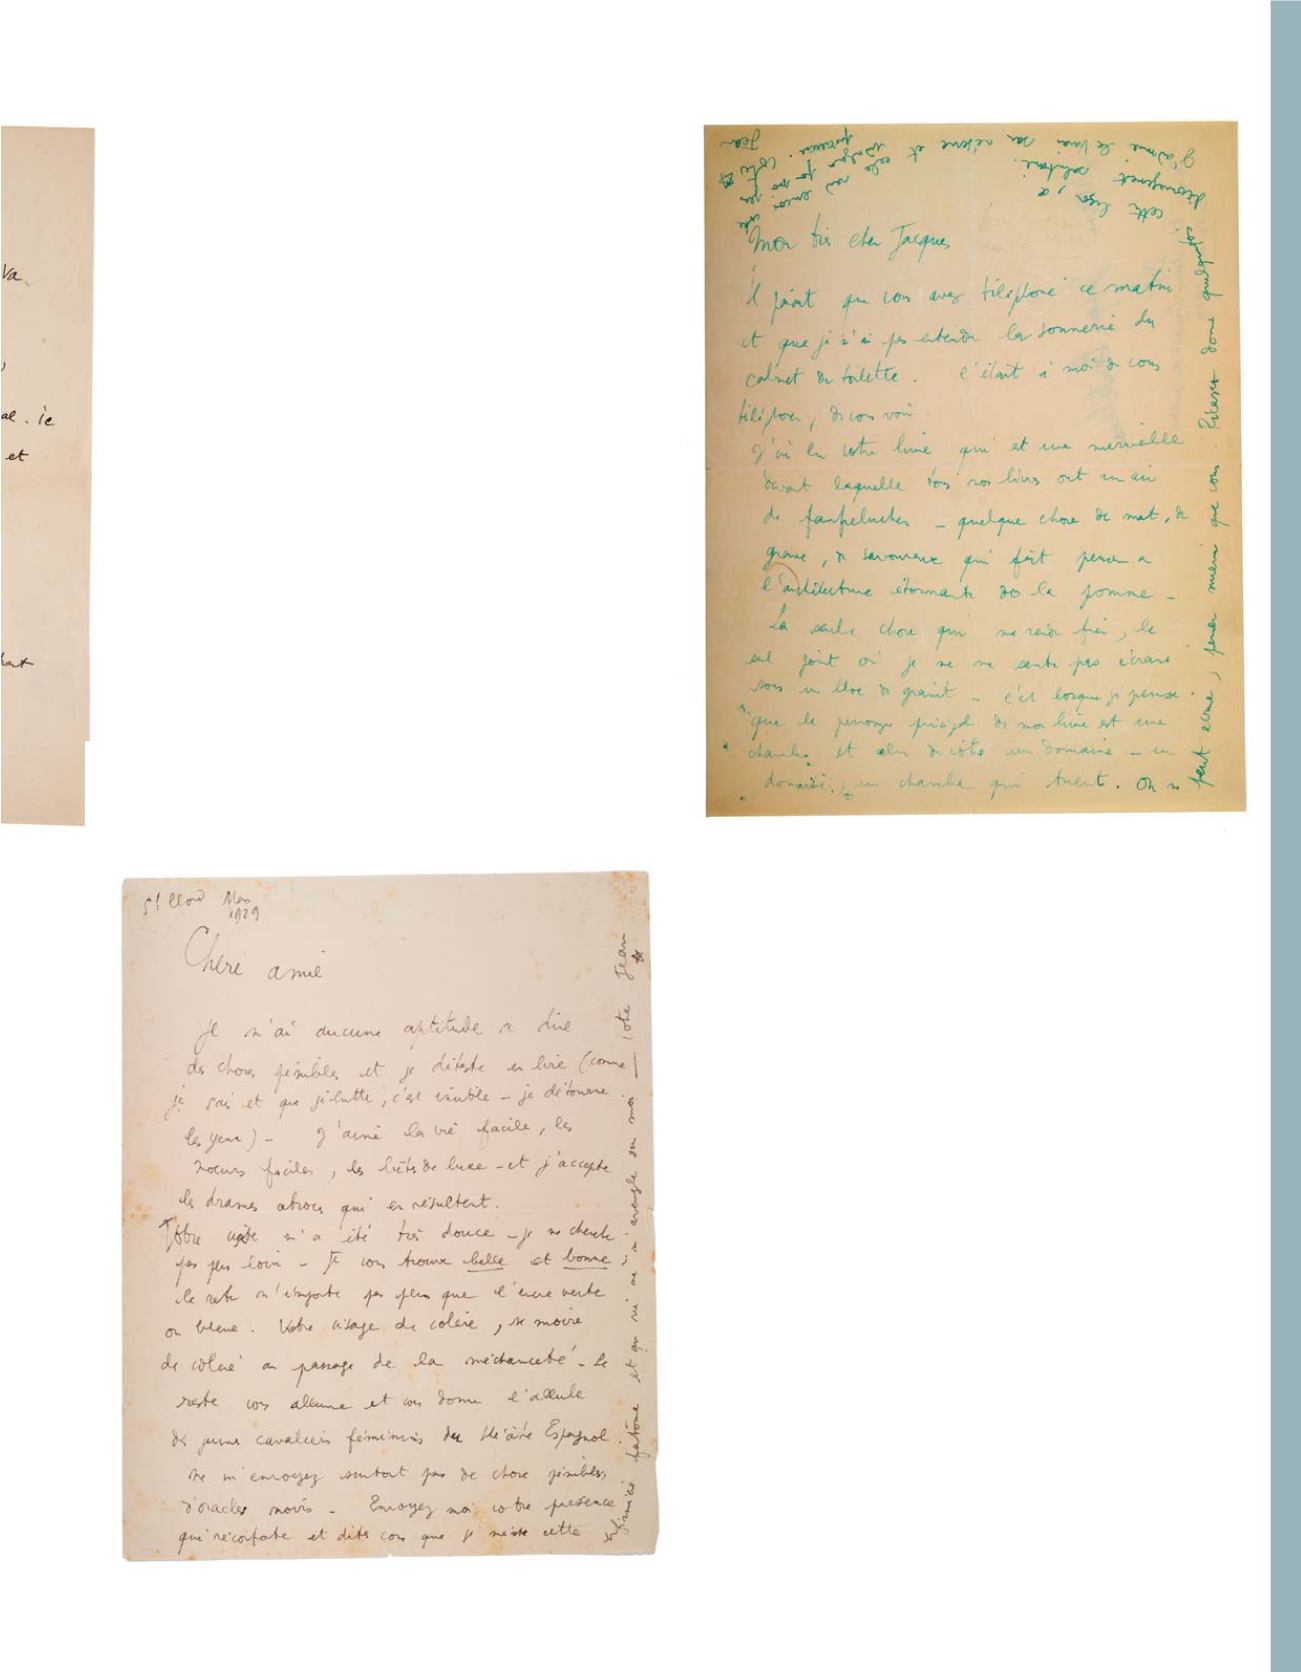 va
al. ie
et
Mon très cher Jacques
Il paraît que vous avez téléphoné ce matin
et que je n'ai pas entendu la sonnerie du
cabinet de toilette. C'était à moi de vous
téléphoner, de vous voir
J'ai lu votre livre qui est une merveille
devant laquelle tous nos livres ont un air
de fanfreluches – quelque chose de mat, de
grave, de savoureux qui fait penser a
l'architecture étonnante de la pomme –
La seule chose qui me rende fier, le
seul point où je ne me sente pas écrasé
sous un bloc de granit – c'est lorsque je pense
que le personnage principal de mon livre est une
chambre et celui de votre un domaine – un
domaine, une chambre qui tuent. On ne
peut écrire, penser mieux que vous. Picasso donne quelquefois
cette leçon, ce
découragement salutaire.
J'aime le vrai sa réserve et
votre
Jean
St Cloud Mars
1929
Chère amie
Je n'ai aucune aptitude a dire
des choses pénibles et je déteste en lire (comme
je sais et que je lutte, c'est inutile – je détourne
les yeux) – J'aime la vie facile, les
mœurs faciles, les objets de luxe – et j'accepte
les drames atroces qui en résultent.
Votre visite m'a été très douce – je ne cherche
pas plus loin – Je vous trouve belle et bonne ;
le reste m'importe pas plus que l'encre verte
ou bleue. Votre visage de colère, se moire
de colère au passage de la méchanceté – Le
reste vous allume et vous donne l'allure
des jeunes cavaliers féminins du théâtre Espagnol.
Ne m'envoyez surtout pas de choses pénibles,
d'oracles noirs – Envoyez moi votre présence
qui réconforte et dites vous que je mérite cette
fantôme et qui ne m'aveugle sur moi – votre Jean